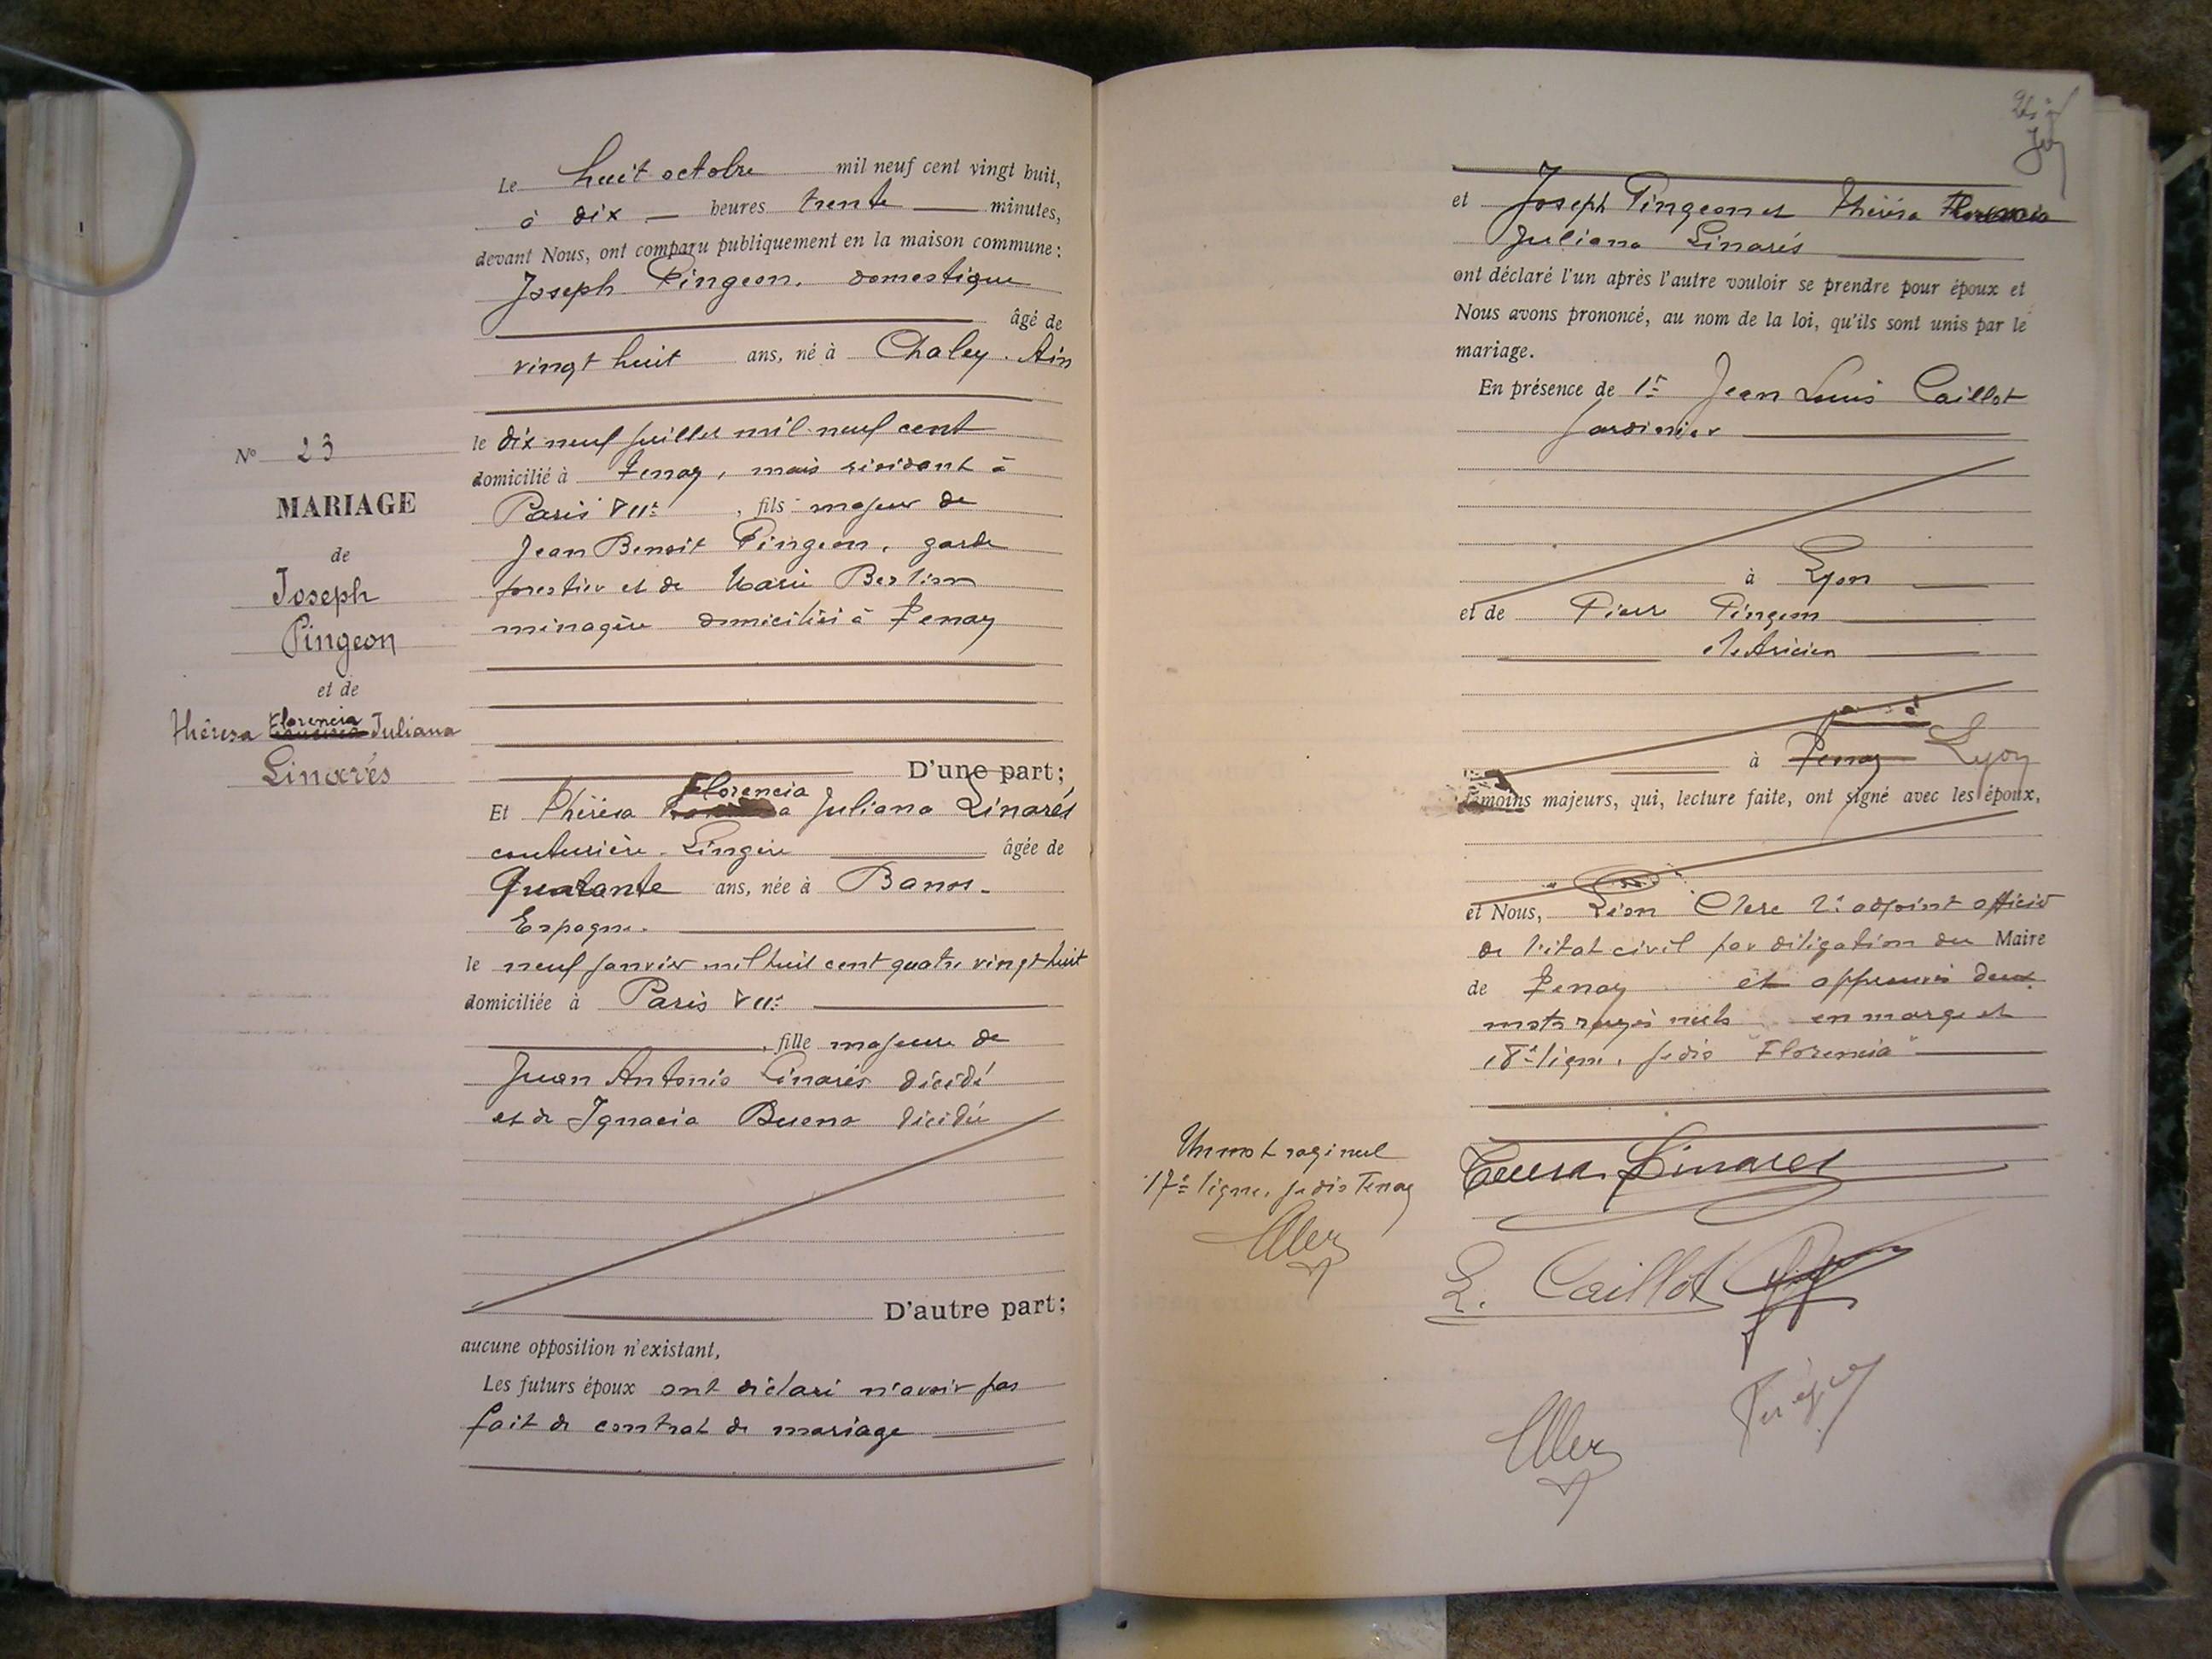 Le huit octobre mil neuf cent vingt huit,
à dix heures trente minutes,
devant Nous, ont comparu publiquement en la maison commune:
Joseph Pingeon, domestique
âgé de
vingt huit ans, né à Chaley. Ain
le dix neuf juillet mil neuf cent
domicilié à Tenay, mais résidant à
Paris VIIe, fils majeur de
Jean Benoit Pingeon, garde
forestier et de Marie Berlion
ménagère domiciliés à Tenay
D'une part;
No 23
MARIAGE
de
Joseph
Pingeon
et de
Florencia
Thérésa Juliana
Linarés
Florencia
Et Thérésa Juliana Linarés
couturière-Lingère âgée de
Quarante ans, née à Banos-
Espagne.
le neuf janvier mil huit cent quatre vingt huit
domiciliée à Paris VIIe
, fille majeure de
Juan Antonio Linarés décédé
et de Ignacia Buena décédée
D'autre part;
aucune opposition n'existant,
Les futurs époux ont déclaré n'avoir pas
fait de contrat de mariage
et Joseph Pingeon et Thérésa Florencia
Juliana Linarés
ont déclaré l'un après l'autre vouloir se prendre pour époux et
Nous avons prononcé, au nom de la loi, qu'ils sont unis par le
mariage.
En présence de 1r Jean Louis Caillot
Jardinier
à Lyon
et de Pierre Pingeon
électricien
à Tenay Lyon
témoins majeurs, qui, lecture faite, ont signé avec les époux,
et Nous, Léon Clerc 2e adjoint officier
de l'état civil par délégation du Maire
de Tenay et approuvé deux
mots rayés nuls en marge et
18e ligne, je dis "Florencia"
Un mot rayé nul
17e ligne, je dis Tenay
Teresa Linares
L. Caillot